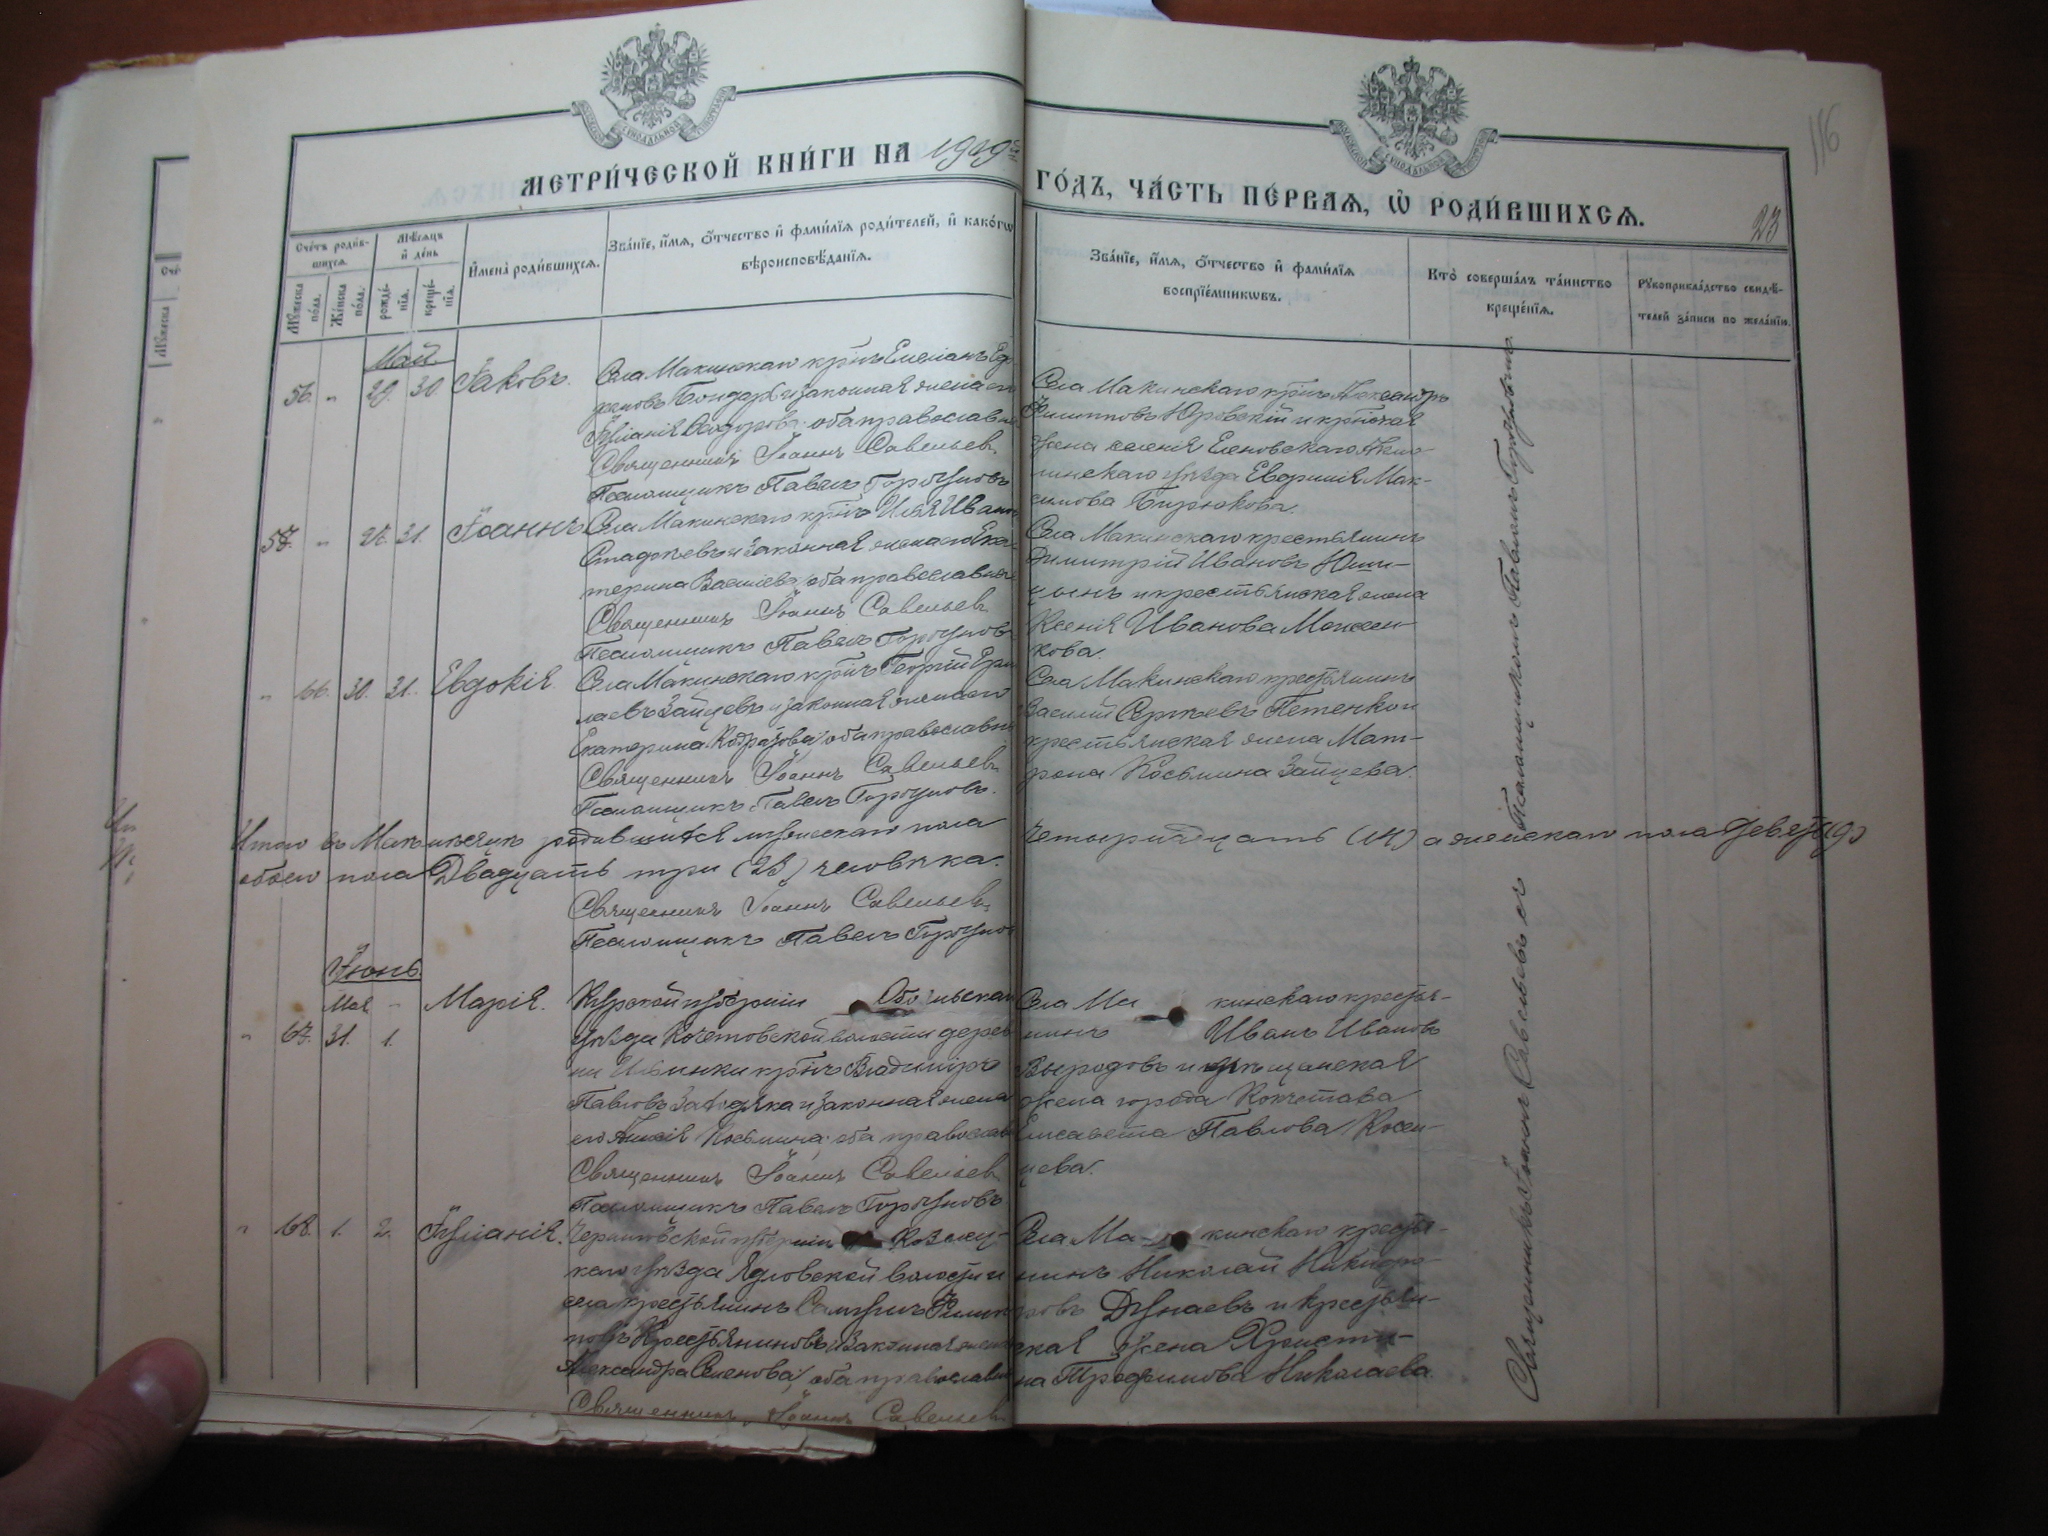 МЕТРИ́ЧЕСКОЙ КНИ́ГИ НА 1909й
ГО́ДЪ, ЧА́СТЬ ПЕ́РВАЯ, Ѡ҆ РОДИ́ВШИХСЯ.
116
23
Сче́тъ роди́в-
шихся.
Мѣ́сяцъ
и҆ де́нь
Мꙋ́жеска
по́ла.
Же́нска
по́ла.
рожде́-
нїя.
креще́-
нїя.
И҆мена̀ роди́вшихся.
Зва́нїе, и҆́мя, ѻ҆́тчество и҆ фами́лїя роди́телей, и҆ како́гѡ
вѣроисповѣ́данїя.
Зва́нїе, и҆́мя, ѻ҆́тчество и҆ фами́лїя
воспрїе́мникѡвъ.
Кто̀ соверша́лъ та́инство
креще́нїя.
Рꙋкоприкла́дство свидѣ́-
телей за́писи по жела́нїю.
Май.
56. „ 29. 30. Іаковъ.
Села Макинскаго кр-нъ Емеліанъ
Бондарь и законная жена его
Іуліанія Ѳедорова, оба православные
Священникъ Іоаннъ Савельевъ
Псаломщикъ Павелъ Горбуновъ
Села Макинскаго кр-нъ Александръ
Филипповъ Юровскій и кр-нская
жена селенія Еленовскаго Акмо-
линскаго уѣзда Евфимія Мак-
симова Бирюкова.
57. „ 27. 31. Іоаннъ
Села Макинскаго кр-нъ Илья Иванов
и законная жена его Ека-
терина Васильева, оба православные
Священникъ Іоаннъ Савельевъ
Псаломщикъ Павелъ Горбуновъ
Села Макинскаго крестьянинъ
Димитрій Ивановъ Юши-
цынъ и крестьянская жена
Ксенія Иванова Мошен-
кова.
„ 66. 30. 31. Евдокія.
Села Макинскаго кр-нъ Георгій Ерми-
лаевъ Зайцевъ и законная жена его
Екатерина Кодратова, оба православные
Священникъ Іоаннъ Савельевъ
Псаломщикъ Павелъ Горбуновъ.
Села Макинскаго крестьянинъ
Василій Сергѣевъ Петенко и
крестьянская жена Мат-
рона Косьмина Зайцева.
Итого въ Маѣ мѣсяцѣ родившихся мужескаго пола четырнадцать (14) а женскаго пола девять (9)
обоего пола Двадцать три (23) человѣка.
Священникъ Іоаннъ Савельевъ
Псаломщикъ Павелъ Горбуновъ
Іюнь.
Мая „
„ 67. 31. 1. Марія.
Курской губерніи Обоянскаго
уѣзда Кочетовской волости дерев-
ни Ивинки кр-нъ Владиміръ
Павловъ и законная жена
его Анисія Косьмина, оба православные
Священникъ Іоаннъ Савельевъ
Псаломщикъ Павелъ Горбуновъ
Села Макинскаго крестья-
нинъ Иванъ Ивановъ
Выродовъ и мѣщанская
жена города Кокчетава
Елисавета Павлова Косен-
цева.
„ 68. 1. 2. Іуліанія.
Черниговской губерніи Козелец-
каго уѣзда Ядловской волости и
села крестьянинъ Филип-
повъ Крестьяниновъ и законная жена
Александра Семенова, оба православные
Священникъ Іоаннъ Савельевъ
Села Макинскаго крестья-
нинъ Николай Никифо-
ровъ Дунаевъ и крестьян-
ская жена Христи-
на Трофимова Николаева.
Священникъ Іоаннъ Савельевъ съ Псаломщикомъ Павломъ Горбуновымъ